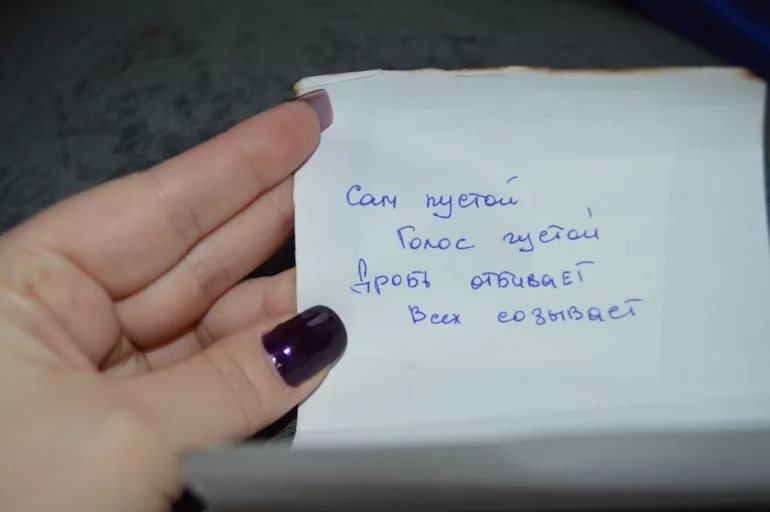 Сам пустой
Голос густой
Дробь отбивает
Всех созывает